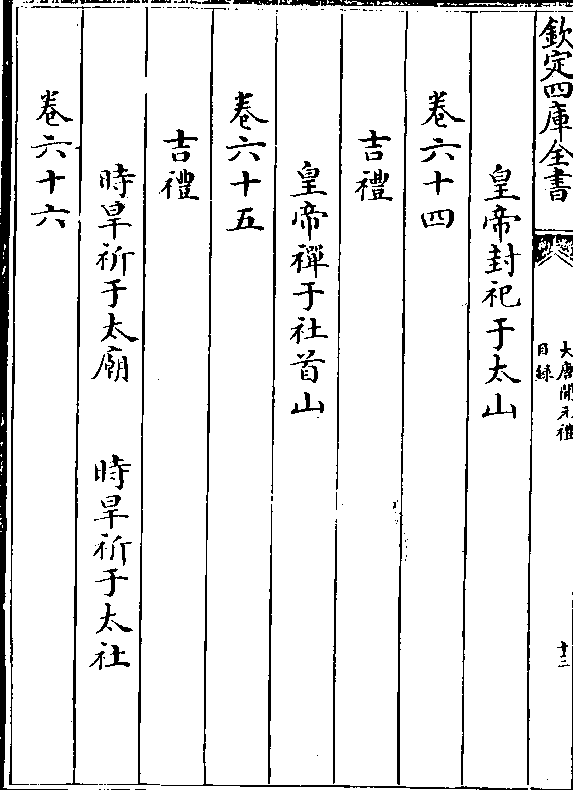 欽定四庫全書
大唐開元禮
目錄
十三
皇帝封祀于太山
卷六十四
吉禮
皇帝禪于社首山
卷六十五
吉禮
時旱祈于太廟　時旱祈于太社
卷六十六